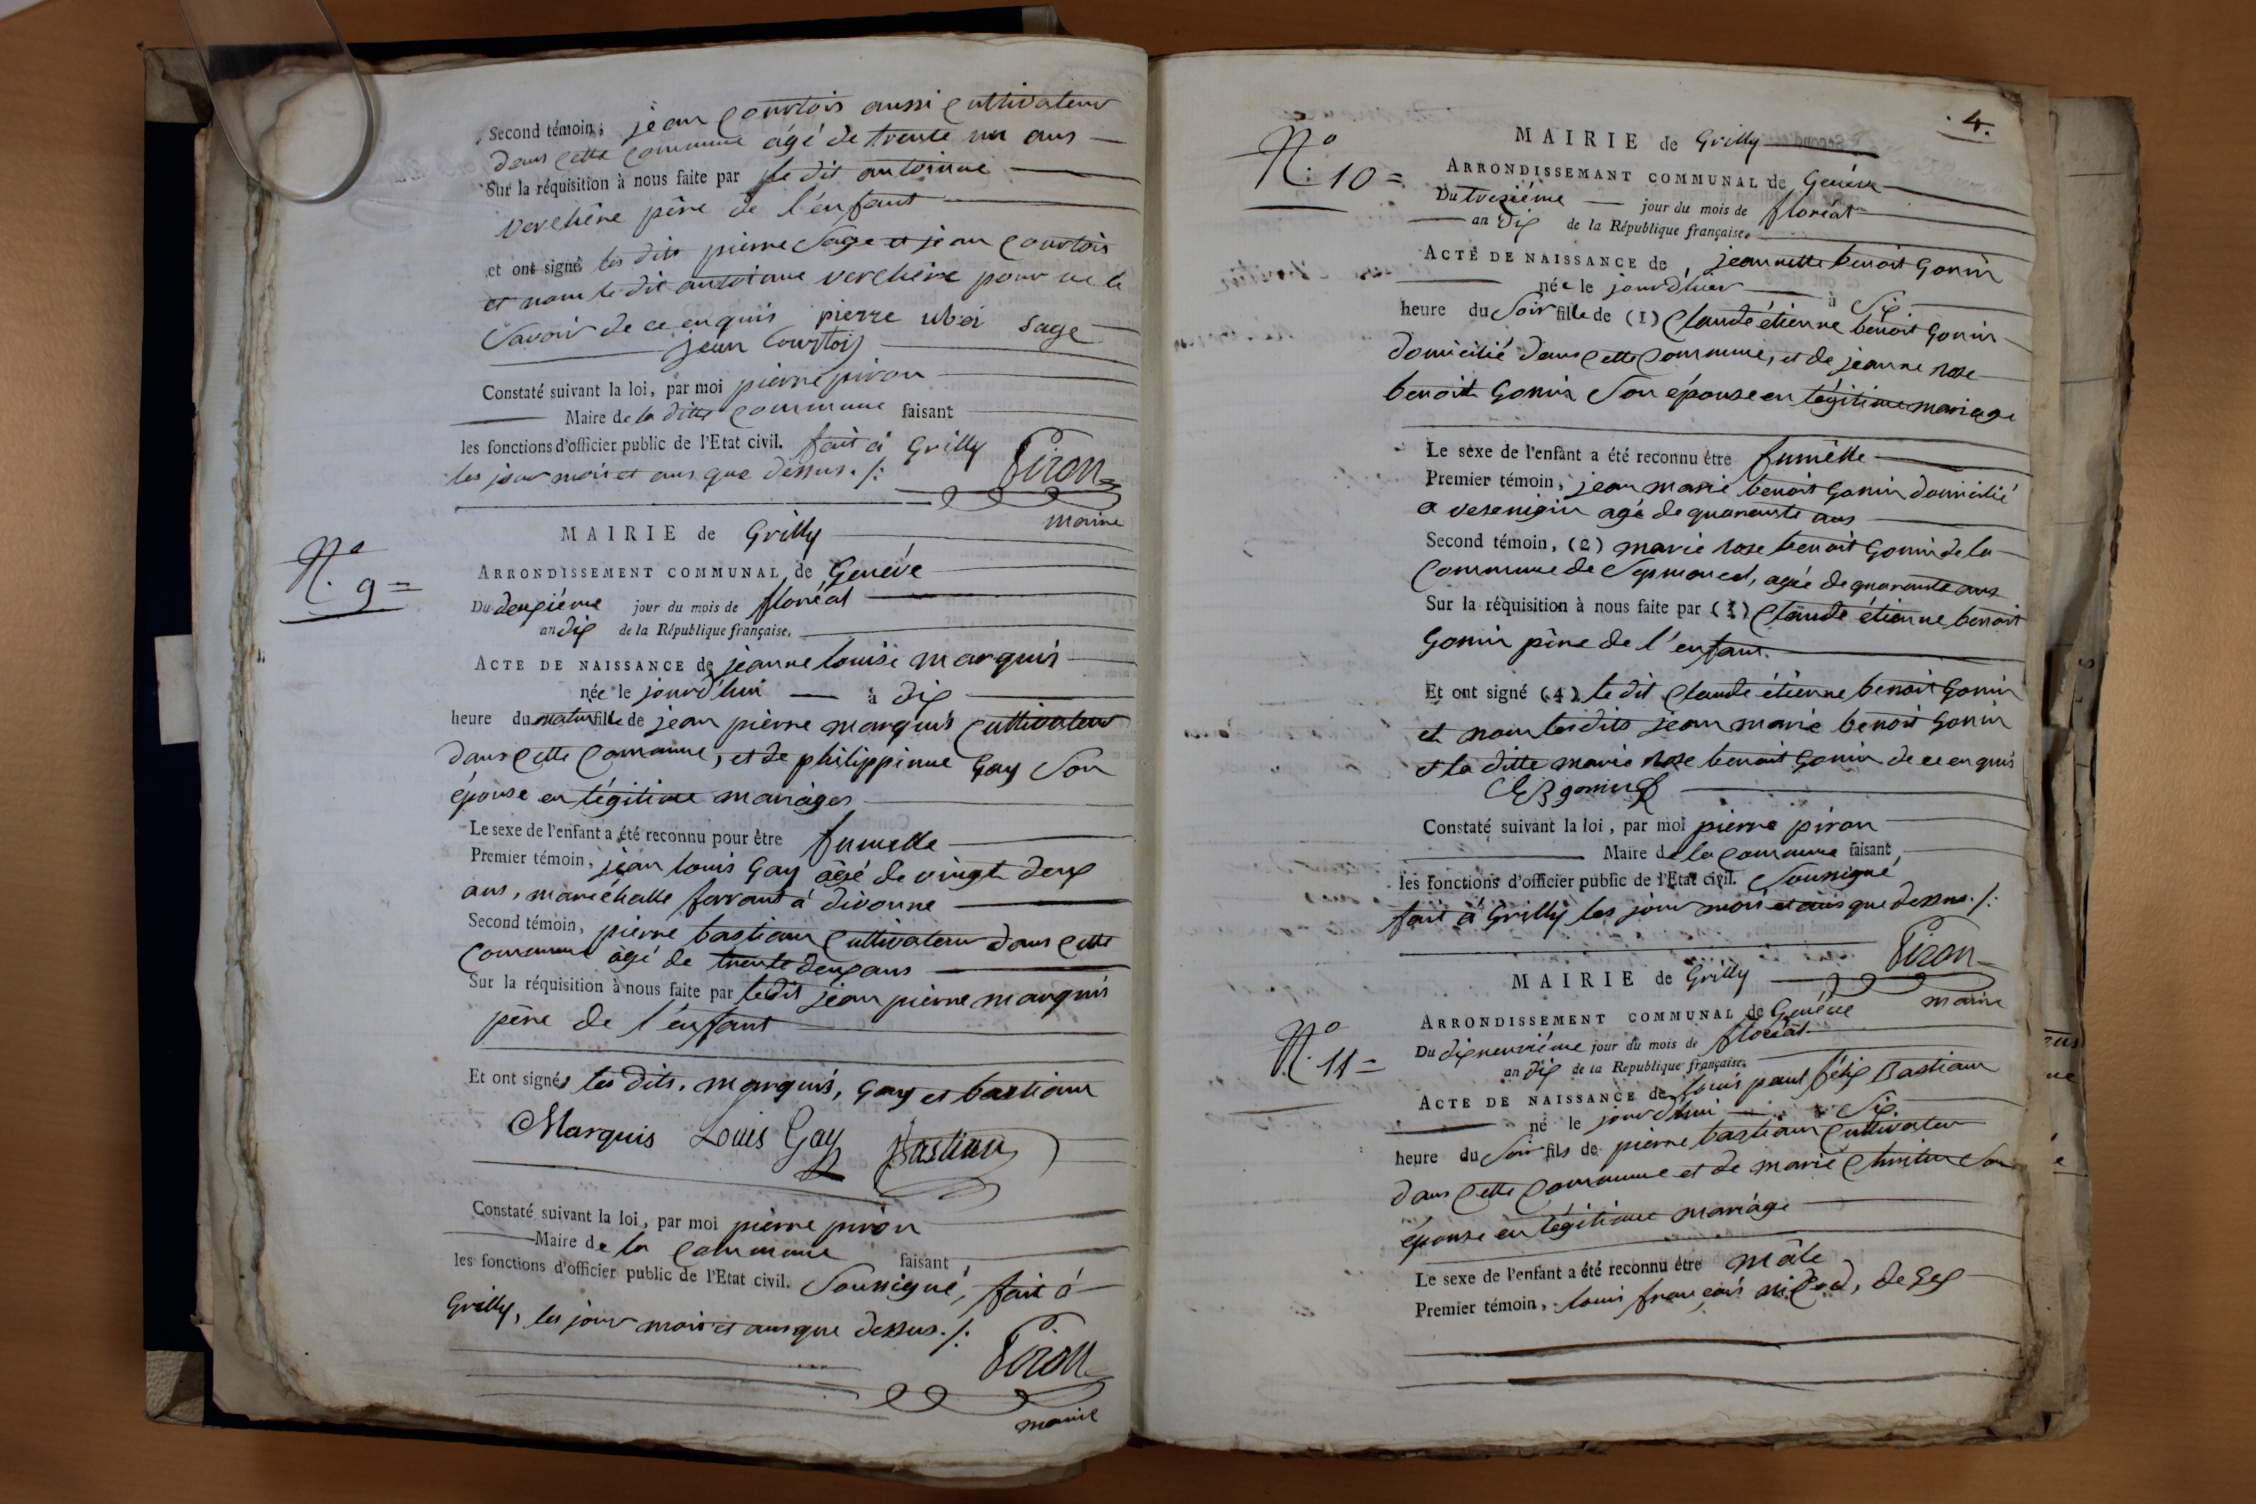 Second témoin, jean Courtois aussi Cultivateur
dans Cette Commune âgé de trente un ans
Sur la réquisition à nous faite par le dit antoinne
Verchére pére de l'enfant
et ont signé les dits pierre Sage et jean Courtois
et nom le dit antoinne verchére pour ne le
Savoir de ce enquis pierre Sage
jean Courtois
Constaté suivant la loi, par moi pierre piron
Maire de la ditte Commune faisant
les fonctions d'officier public de l'Etat civil. fait à Grilly
les jour mois et ans que dessus ./.
Piron
maire
N.º 9 =
MAIRIE de Grilly
ARRONDISSEMENT COMMUNAL de Genéve
Du deuxiéme jour du mois de floréal
an dix de la République française.
ACTE DE NAISSANCE de jeanne louise marquis
née le jourd'hui à dix
heure du matin fille de jean pierre marquis Cultivateur
dans Cette Commune, et de philippinne Gay Son
épouse en légitime mariages
Le sexe de l'enfant a été reconnu pour être fumelle
Premier témoin, jean louis Gay âgé de vingt deux
ans, maréchalle ferrant à divonne
Second témoin, pierre bastian Cultivateur dans Cette
Commune âgé de trente deux ans
Sur la réquisition à nous faite par le dit jean pierre marquis
pére de l'énfant
Et ont signés les dits, marquis, Gay et bastian
Marquis Louis Gay Bastian
Constaté suivant la loi, par moi pierre piron
Maire de la Commune faisant
les fonctions d'officier public de l'Etat civil. Soussigné, fait à
Grilly, les jour mois et ans que dessus ./.
Piron
maire
. 4 .
N.º 10 =
MAIRIE de Grilly
ARRONDISSEMANT COMMUNAL de Genéve
Du treiziéme jour du mois de floréal
an dix de la République française.
ACTE DE NAISSANCE de jeannette benoit Gonin
née le jourd'huy à Six
heure du Soir fille de (1) Claude étienne benoit Gonin
domicilié dans Cette Commune, et de jeanne rose
benoit Gonin Son épouse en légitime mariage
Le sexe de l'enfant a été reconnu être fumélle
Premier témoin, jean marie benoit Gonin domicilié
a vesenigin agé de quarante ans
Second témoin, (2) marie rose benoit Gonin de la
Commune de Septmoncel, agée de quarante ans
Sur la réquisition à nous faite par (3) Claude étienne benoit
Gonin pére de l'enfant.
Et ont signé (4) le dit Claude étienne benoit Gonin
et nom les dits jean marie benoit Gonin
et la ditte marie rose benoit Gonin de ce enquis
CEBgonin
Constaté suivant la loi, par moi pierre piron
Maire de la Commune faisant
les fonctions d'officier public de l'Etat civil. Soussigné
fait à Grilly les jour mois et ans que dessus ./.
Piron
maire
N.º 11 =
MAIRIE de Grilly
ARRONDISSEMENT COMMUNAL de Genéve
Du dixneuviéme jour du mois de floréal
an dix de la République française.
ACTE DE NAISSANCE de louis paul félix Bastian
né le jourd'hui à Six
heure du Soir fils de pierre bastian Cultivateur
dans Cette Commune et de marie Son
épouse en légitime mariage
Le sexe de l'enfant a été reconnu être mâle
Premier témoin, louis françois nicod, de Gex